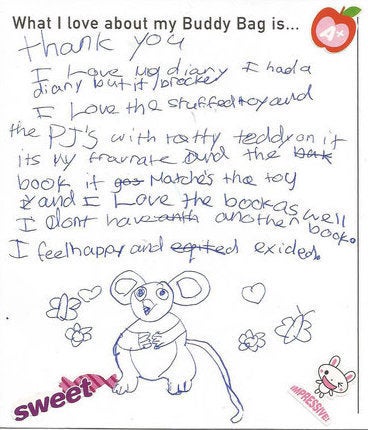 What I love about my Buddy Bag is...
A+
thank you
I Love my diary I had a
diary but it brocker
I Love the stuffed toy and
the PJ's with tatty teddy on it
its my fravrate and the bak
book it gos Matches the toy
and I Love the book as well
I dont have anth another book.
I feel happy and eqited exided.
sweet
IMPRESSIVE!